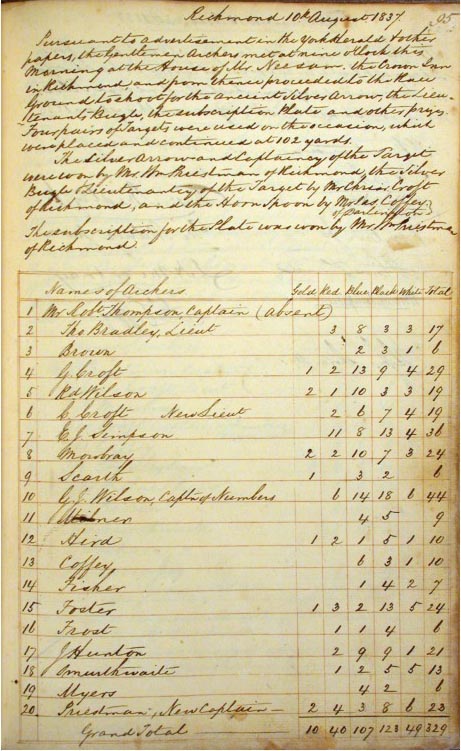 Richmond 10th August 1837. 95
Pursuant to advertisement in the York Herald & other
papers, the Gentlemen Archers met at nine o'Clock this
Morning at the House of Mr Neesam. the Crown Inn
in Richmond, and from thence proceeded to the Race
Ground to shoot for the ancient Silver Arrow, the Lieu-
tenants Bugle, the subscription Plate and other prizes.
Four pairs of Targets were used on the occasion, which
were placed and continued at 102 yards.
The Silver Arrow and Captaincy of the Target
were won by Mr. Wm Priestman of Richmond, the Silver
Bugle & Lieutenantcy of the Target by Mr Chris. Croft
of Richmond, and the Horn Spoon by Mr Jas Coffey
of Darlington.
The subscription for the Plate was won by Mr. Wm Priestman
of Richmond.
Names of Archers Gold Red Blue Black White Total
1 Mr Robt Thompson Captain (absent)
2 Tho Bradley, Lieut 3 8 3 3 17
3 Brown 2 3 1 6
4 G Croft 1 2 13 9 4 29
5 Rd Wilson 2 1 10 3 3 19
6 C Croft New Lieut 2 6 7 4 19
7 E J Simpson 11 8 13 4 36
8 Mowbray 2 2 10 7 3 24
9 Scarth 1 3 2 6
10 C J Wilson, Captn of Numbers 6 14 18 6 44
11 Milner 4 5 9
12 Hird 1 2 1 5 1 10
13 Coffey 6 3 1 10
14 Fisher 1 4 2 7
15 Foster 1 3 2 13 5 24
16 Frost 1 1 4 6
17 J Hunton 2 9 9 1 21
18 Smurthwaite 1 2 5 5 13
19 Myers 4 2 6
20 Priestman, New Captain — 2 4 3 8 6 23
Grand Total 10 40 107 123 49 329